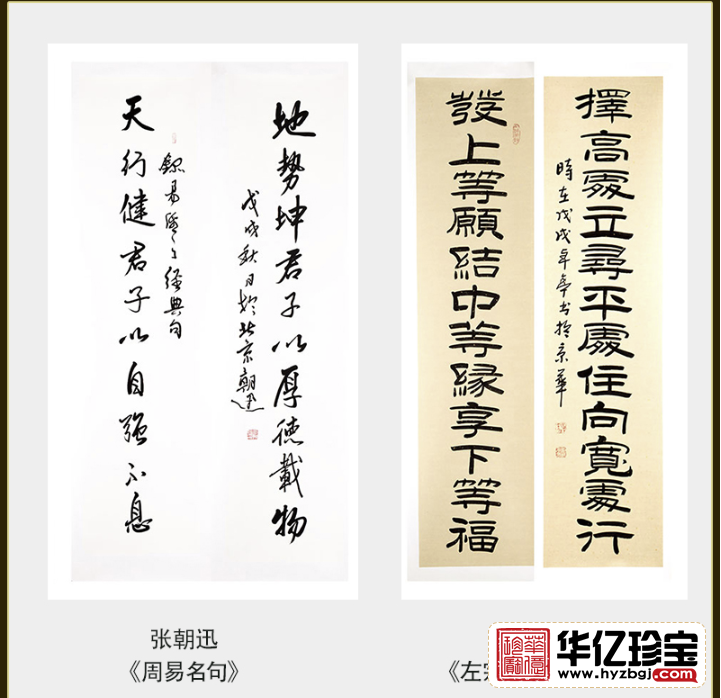 天行健君子以自强不息
地勢坤君子以厚德載物
戊戌秋月於北京朝迅
發上等願結中等緣享下等福
擇高處立尋平處住向寬處行
時在戊戌年
书於京華
张朝迅
《周易名句》
《左
华亿珍宝
www.hyzbgj.com